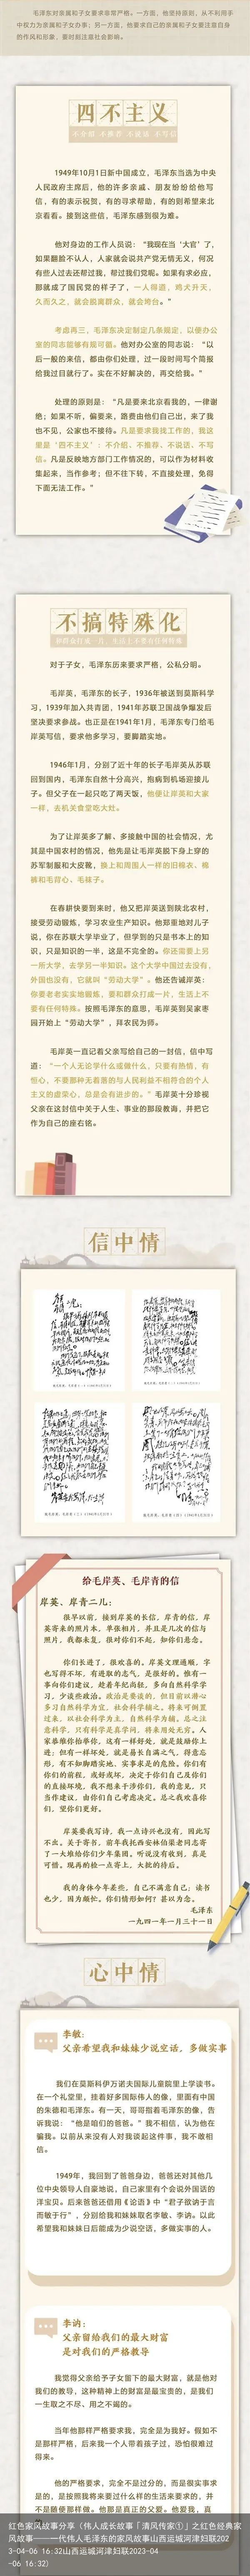 毛泽东对亲属和子女要求非常严格。一方面，他坚持原则，从不利用手
中权力为亲属和子女办事；另一方面，他要求自己的亲属和子女要注意自身
的作风和形象，要时刻注意社会影响。
四不主义
不介绍 不推荐 不说话 不写信
1949年10月1日新中国成立，毛泽东当选为中央
人民政府主席后，他的许多亲戚、朋友纷纷给他写
信，有的表示祝贺，有的寻求帮助，有的则希望来北
京看看。接到这些信，毛泽东感到很为难。
他对身边的工作人员说：“我现在当‘大官’了，
如果翻脸不认人，人家就会说共产党无情无义，何况
有些人过去还帮过我，帮过我们党呢。如果有求必应，
那就成了国民党的样子了，一人得道，鸡犬升天，
久而久之，就会脱离群众，就会垮台。”
考虑再三，毛泽东决定制定几条规定，以便办公
室的同志能够有规可循。他对办公室的同志说：“以
后一般的来信，都由你们处理，过一段时间写个简报
给我过目就行了。实在不好解决的，再交给我。”
处理的原则是：“凡是要来北京看我的，一律谢
绝；如果不听，偏要来，路费由他们自己出，来了我
也不见，公家也不接待。凡是要求我找工作的，我这
里是‘四不主义’：不介绍、不推荐、不说话、不写
信。凡是反映地方部门工作情况的，可以作为材料收
集起来，当作参考；但不往下转，不直接处理，免得
下面无法工作。”
不搞特殊化
对于子女，毛泽东历来要求严格，公私分明。
毛岸英，毛泽东的长子，1936年被送到莫斯科学
习，1939年加入共青团，1941年苏联卫国战争爆发后
坚决要求参战。也正是在1941年1月，毛泽东专门给毛
岸英写信，要求他多学习，要脚踏实地。
1946年1月，分别了近十年的长子毛岸英从苏联
回到国内，毛泽东自然十分高兴，抱病到机场迎接儿
子。但父子在一起只吃了两天饭，他便让岸英和大家
一样，去机关食堂吃大灶。
为了让岸英多了解、多接触中国的社会情况，尤
其是中国农村的情况，他先是让毛岸英脱下身上穿的
苏军制服和大皮靴，换上和周围人一样的旧棉衣、棉
裤和毛背心、毛袜子。
在春耕快要到来时，他又把岸英送到陕北农村，
接受劳动锻炼，学习农业生产知识。他郑重地对儿子
说，你在苏联大学毕业了，但学到的只是书本上的知
识，只是知识的一半，这是不完全的。你还需要上另
一所大学，去学另一半知识。这个大学中国过去没有，
外国也没有，它就叫“劳动大学”。他还告诫岸英：
你要老老实实地锻炼，要和群众打成一片，生活上不
要有任何特殊。按照毛泽东的意思，毛岸英到吴家枣
园开始上“劳动大学”，拜农民为师。
毛岸英一直记着父亲写给自己的一封信，信中写
道：“一个人无论学什么或做什么，只要有热情，有
恒心，不要那种无着落的与人民利益不相符合的个人
主义的虚荣心，总是会有进步的。”毛岸英十分珍视
父亲在这封信中关于人生、事业的那段教诲，并把它
作为自己的座右铭。
信中情
给毛岸英、毛岸青的信
岸英、岸青二儿：
很早以前，接到岸英的长信，岸青的信，岸
英寄来的照片本，单张相片，并且是几次的信与
照片，我都未复，很对你们不起，知你们悬念。
你们长进了，很欢喜的。岸英文理通顺，字
也写得不坏，有进取的志气，是很好的。惟有一
事向你们建议，趁着年纪尚轻，多向自然科学学
习，少谈些政治。政治是要谈的，但目前以潜心
多习自然科学为宜，社会科学辅之。将来可倒置
过来，以社会科学为主，自然科学为辅。总之注
意科学，只有科学是真学问，将来用处无穷。人
家恭维你抬举你，这有一样好处，就是鼓励你上
进；但有一样坏处，就是易长自满之气，得意忘
形，有不知脚踏实地、实事求是的危险。你们有
你们的前程，或好或坏，决定于你们自己及你们
的直接环境，我不想来干涉你们，我的意见，只
当作建议，由你们自己考虑决定。总之我欢喜你
们，望你们更好。
岸英要我写诗，我一点诗兴也没有，因此写
不出。关于寄书，前年我托西安林伯渠老同志寄
了一大堆给你们少年集团，听说没有收到，真是
可惜。现再酌检一点寄上，大批的待后。
我的身体今年差些，自己不满意自己；读书
也少，因为颇忙。你们情形如何？甚以为念。
毛泽东
一九四一年一月三十一日
心中情
李敏：
父亲希望我和妹妹少说空话，多做实事
我们在莫斯科伊万诺夫国际儿童院里上学读书。
在一个礼堂里，挂着好多国际伟人的像，里面有中国
的朱德和毛泽东。有一天，哥哥指着毛泽东的像，告
诉我说：“他是咱们的爸爸。”我不相信，认为他在
骗我。以前从来没有人对我谈起这件事，我不敢相
信。
1949年，我回到了爸爸身边，爸爸还对其他几
位中央领导人自豪地说，自己家里有个会说外国话的
洋宝贝。后来爸爸还借用《论语》中“君子欲讷于言
而敏于行”，分别给我和妹妹取名李敏、李讷。以此
希望我和妹妹日后能成为少说空话，多做实事的人。
李讷：
父亲留给我们的最大财富
是对我们的严格教导
我觉得父亲给予子女留下的最大财富，就是他对
我们的教导，这种精神上的财富是最宝贵的，是我们
一生取之不尽、用之不竭的。
当年他那样严格要求我，完全是为我好。假如不
是那样严格，后来我一个人带着孩子过，恐怕很难过
得来。
他的严格要求，完全不是过分的，而是很实事求
是的，是按照我将来要过什么样的生活来要求的，并
不是随便那样做。他那是真正的父爱。他爱我，真
红色家风故事分享（伟人成长故事「清风传家①」之红色经典家
风故事——一代伟人毛泽东的家风故事山西运城河津妇联202
3-04-06 16:32山西运城河津妇联2023-04
-06 16:32)